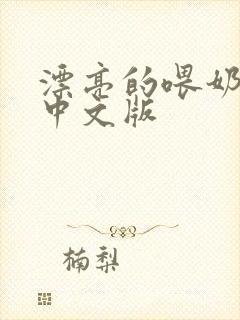 漂亮的喂奶
中文版
楠梨